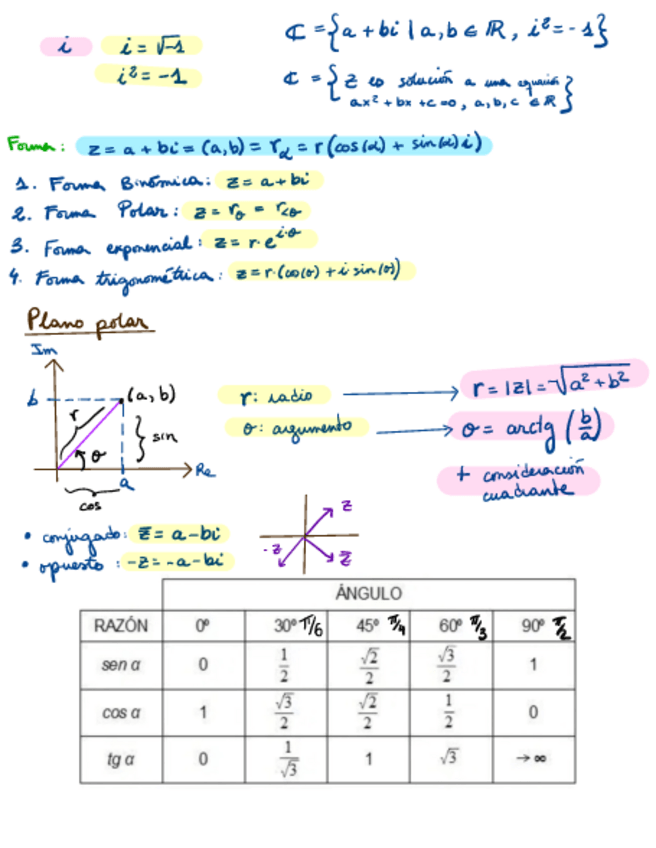 i   i = √-1   ℂ = {a + bi | a, b ∈ ℝ, i² = -1}
i² = -1   ℂ = {z es solución a una ecuación
ax² + bx + c = 0, a, b, c ∈ ℝ}
Forma: z = a + bi = (a, b) = r_α = r (cos(α) + sin(α) i)
1. Forma Binómica: z = a + bi
2. Forma Polar: z = r_θ = r_∠θ
3. Forma exponencial: z = r·e^{i·θ}
4. Forma trigonométrica: z = r·(cos(θ) + i sin(θ))
Plano polar
Im
b   (a, b)   r: radio   r = |z| = √a² + b²
r   sin
θ   θ: argumento   θ = arctg (b/a)
Re
a
cos
+ consideración
cuadrante
• conjugado: z̄ = a - bi   z
• opuesto: -z = -a - bi   -z   z̄
ÁNGULO
RAZÓN   0º   30º π/6   45º π/4   60º π/3   90º π/2
sen α   0   1/2   √2/2   √3/2   1
cos α   1   √3/2   √2/2   1/2   0
tg α   0   1/√3   1   √3   → ∞